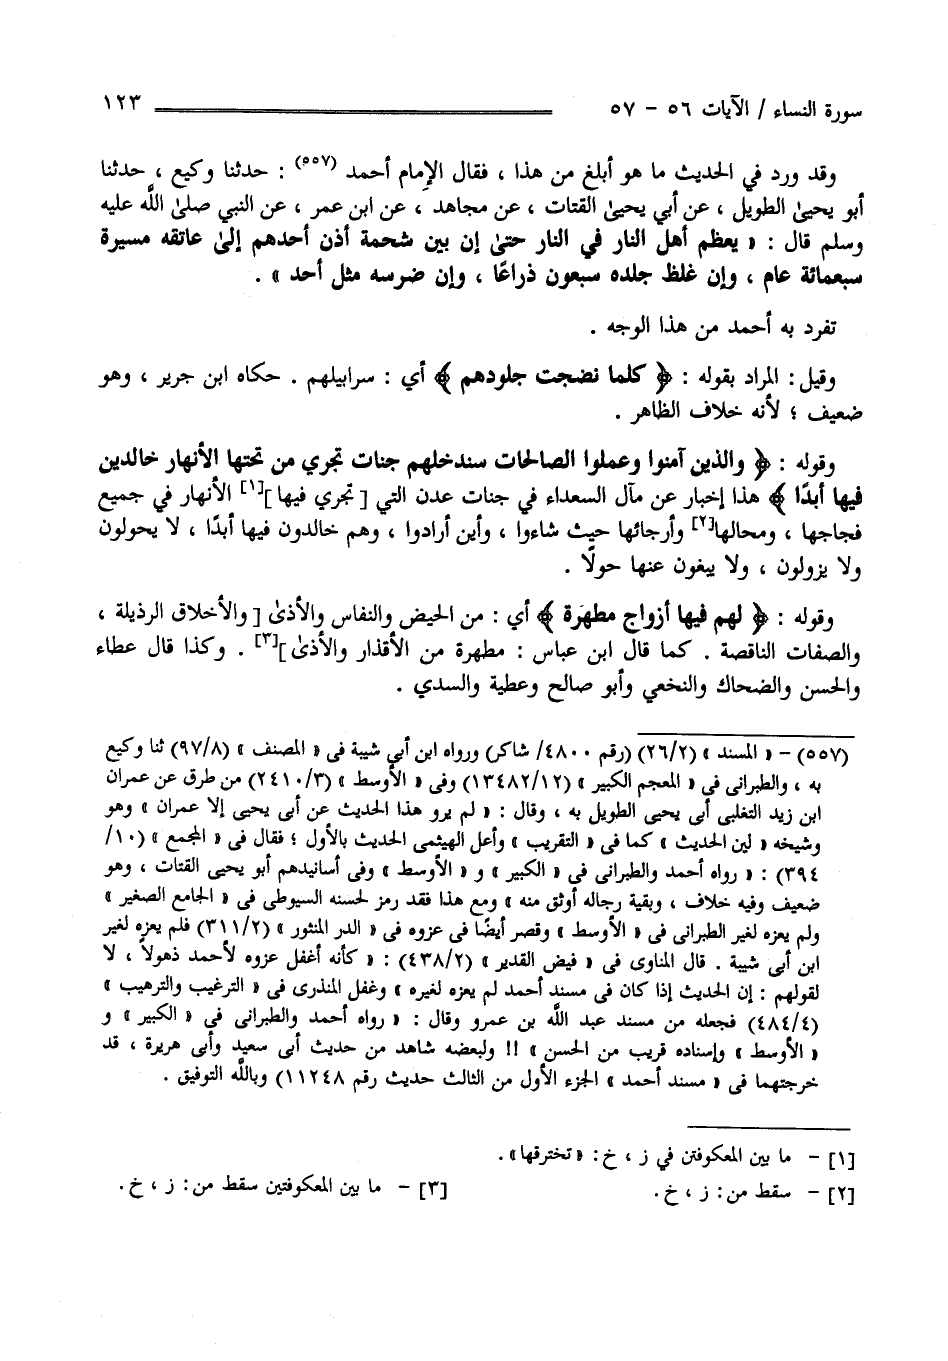 سورة النساء / الآيات ٥٦ - ٥٧ ١٢٣
وقد ورد في الحديث ما هو أبلغ من هذا ، فقال الإمام أحمد (٥٥٧) : حدثنا وكيع ، حدثنا
أبو يحيىٰ الطويل ، عن أبي يحيىٰ القتات ، عن مجاهد ، عن ابن عمر ، عن النبي صلىٰ الله عليه
وسلم قال : « يعظم أهل النار في النار حتىٰ إن بين شحمة أذن أحدهم إلىٰ عاتقه مسيرة
سبعمائة عام ، وإن غلظ جلده سبعون ذراعًا ، وإن ضرسه مثل أحد » .
تفرد به أحمد من هذا الوجه .
وقيل : المراد بقوله : ﴿ كلما نضجت جلودهم ﴾ أي : سرابيلهم . حكاه ابن جرير ، وهو
ضعيف ؛ لأنه خلاف الظاهر .
وقوله : ﴿ والذين آمنوا وعملوا الصالحات سندخلهم جنات تجري من تحتها الأنهار خالدين
فيها أبدًا ﴾ هذا إخبار عن مآل السعداء في جنات عدن التي [ تجري فيها ][١] الأنهار في جميع
فجاجها ، ومحالها[٢] وأرجائها حيث شاءوا ، وأين أرادوا ، وهم خالدون فيها أبدًا ، لا يحولون
ولا يزولون ، ولا يبغون عنها حولًا .
وقوله : ﴿ لهم فيها أزواج مطهرة ﴾ أي : من الحيض والنفاس والأذىٰ [ والأخلاق الرذيلة ،
والصفات الناقصة . كما قال ابن عباس : مطهرة من الأقذار والأذىٰ ][٣] . وكذا قال عطاء
والحسن والضحاك والنخعي وأبو صالح وعطية والسدي .
(٥٥٧) - « المسند » (٢٦/٢) (رقم ٤٨٠٠/ شاكر) ورواه ابن أبى شيبة فى « المصنف » (٩٧/٨) ثنا وكيع
به ، والطبرانى فى « المعجم الكبير » (١٣٤٨٢/١٢) وفى « الأوسط » (٢٤١٠/٣) من طرق عن عمران
ابن زيد التغلبى أبى يحيى الطويل به ، وقال : « لم يرو هذا الحديث عن أبى يحيى إلا عمران » وهو
وشيخه « لين الحديث » كما فى « التقريب » وأعل الهيثمى الحديث بالأول ؛ فقال فى « المجمع » (١٠/
٣٩٤) : « رواه أحمد والطبرانى فى « الكبير » و « الأوسط » وفى أسانيدهم أبو يحيى القتات ، وهو
ضعيف وفيه خلاف ، وبقية رجاله أوثق منه » ومع هذا فقد رمز لحسنه السيوطى فى « الجامع الصغير »
ولم يعزه لغير الطبرانى فى « الأوسط » وقصر أيضًا فى عزوه فى « الدر المنثور » (٣١١/٢) فلم يعزه لغير
ابن أبى شيبة . قال المناوى فى « فيض القدير » (٤٣٨/٢) : « كأنه أغفل عزوه لأحمد ذهولاً ، لا
لقولهم : إن الحديث إذا كان فى مسند أحمد لم يعزه لغيره » وغفل المنذرى فى « الترغيب والترهيب »
(٤٨٤/٤) فجعله من مسند عبد الله بن عمرو وقال : « رواه أحمد والطبرانى فى « الكبير » و
« الأوسط » وإسناده قريب من الحسن » !! ولبعضه شاهد من حديث أبى سعيد وأبى هريرة ، قد
خرجتهما فى « مسند أحمد » الجزء الأول من الثالث حديث رقم ١١٢٤٨) وبالله التوفيق .
[١] - ما بين المعكوفتن في ز ، خ : « تخترقها» .
[٢] - سقط من : ز ، خ . [٣] - ما بين المعكوفتين سقط من : ز ، خ .